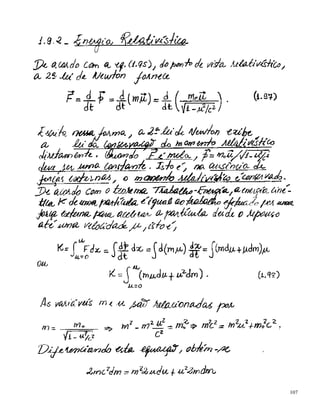 1.9.2 - Energia Relativística
De acordo com a eq. (1.95), do ponto de vista relativístico,
a 2ª lei de Newton fornece
F⃗ = d/dt p⃗ = d/dt (mu⃗) = d/dt (m₀u⃗/√(1-u²/c²)) . (1.97)
Escrita nessa forma, a 2ª lei de Newton exibe
a lei da conservação do momento relativístico
diretamente. Quando F⃗ é nula, p⃗ = m₀u⃗/√(1-u²/c²)
deve ser uma constante. Isto é, na ausência de
forças externas, o momento relativístico é conservado.
De acordo com o teorema Trabalho-Energia, a energia ciné-
tica K de uma partícula é igual ao trabalho efetuado por uma
força externa para acelerar a partícula desde o repouso
até uma velocidade u, isto é,
K = ∫ᵤ₌₀ᵘ F dx = ∫ dp/dt dx = ∫ d(mu) dx/dt = ∫ (mdu + udm)u
ou
K = ∫ᵤ₌₀ᵘ (mudu + u²dm) . (1.98)
As variáveis m e u são relacionadas por
m = m₀/√(1-u²/c²) ⇒ m² - m² u²/c² = m₀² ⇒ m²c² = m²u² + m₀²c² .
Diferenciando esta equação, obtém-se
2mc²dm = m²2udu + u²2mdm
107